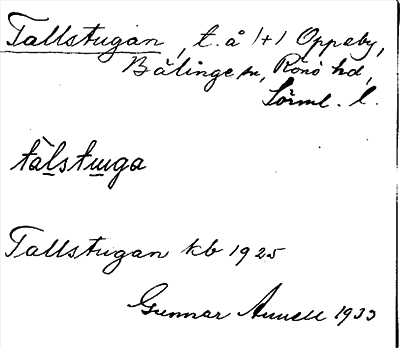 Tallstugan, t. å 1/1 Oppeby,
Bälinge sn, Rönö hd,
Sörml. l.
tàlstuga
Tallstugan kb 1925
Gunnar Annell 1933